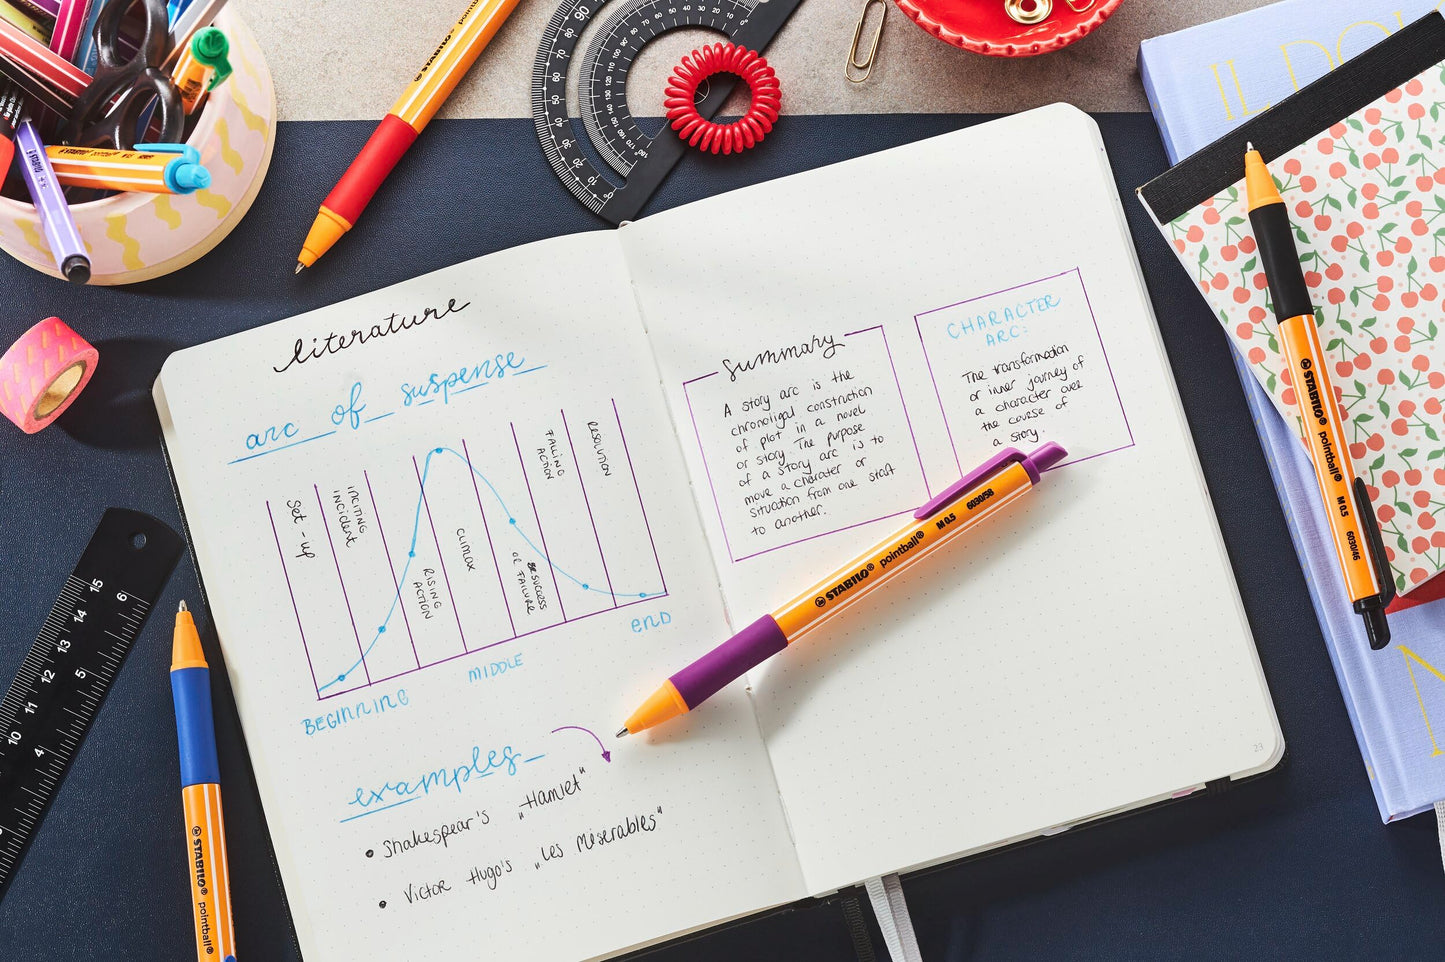 literature
arc of suspense
Set-up
INCITING
INCIDENT
RISING
ACTION
CLIMAX
FALLING
ACTION
SUCCESS
OR FAILURE
RESOLUTION
BEGINNING
MIDDLE
END
examples
• Shakespear's „Hamlet"
• Victor Hugo's „Les Miserables"
Summary
A story arc is the
chronoligal construction
of plot in a novel
or story. The purpose
of a story arc is to
move a charater or
situation from one staft
to another.
CHARACTER
ARC:
The transformation
or inner journey of
a character over
the course of
a story.
23
STABILO® pointball® M 0.5 6030/58
STABILO® pointball® M 0.5 6030/46
STABILO® pointball®
STABILO®
IL DO
90
80
70
60
50
40
30
20
10
0°
15
14
13
12
11
10
6
5
4